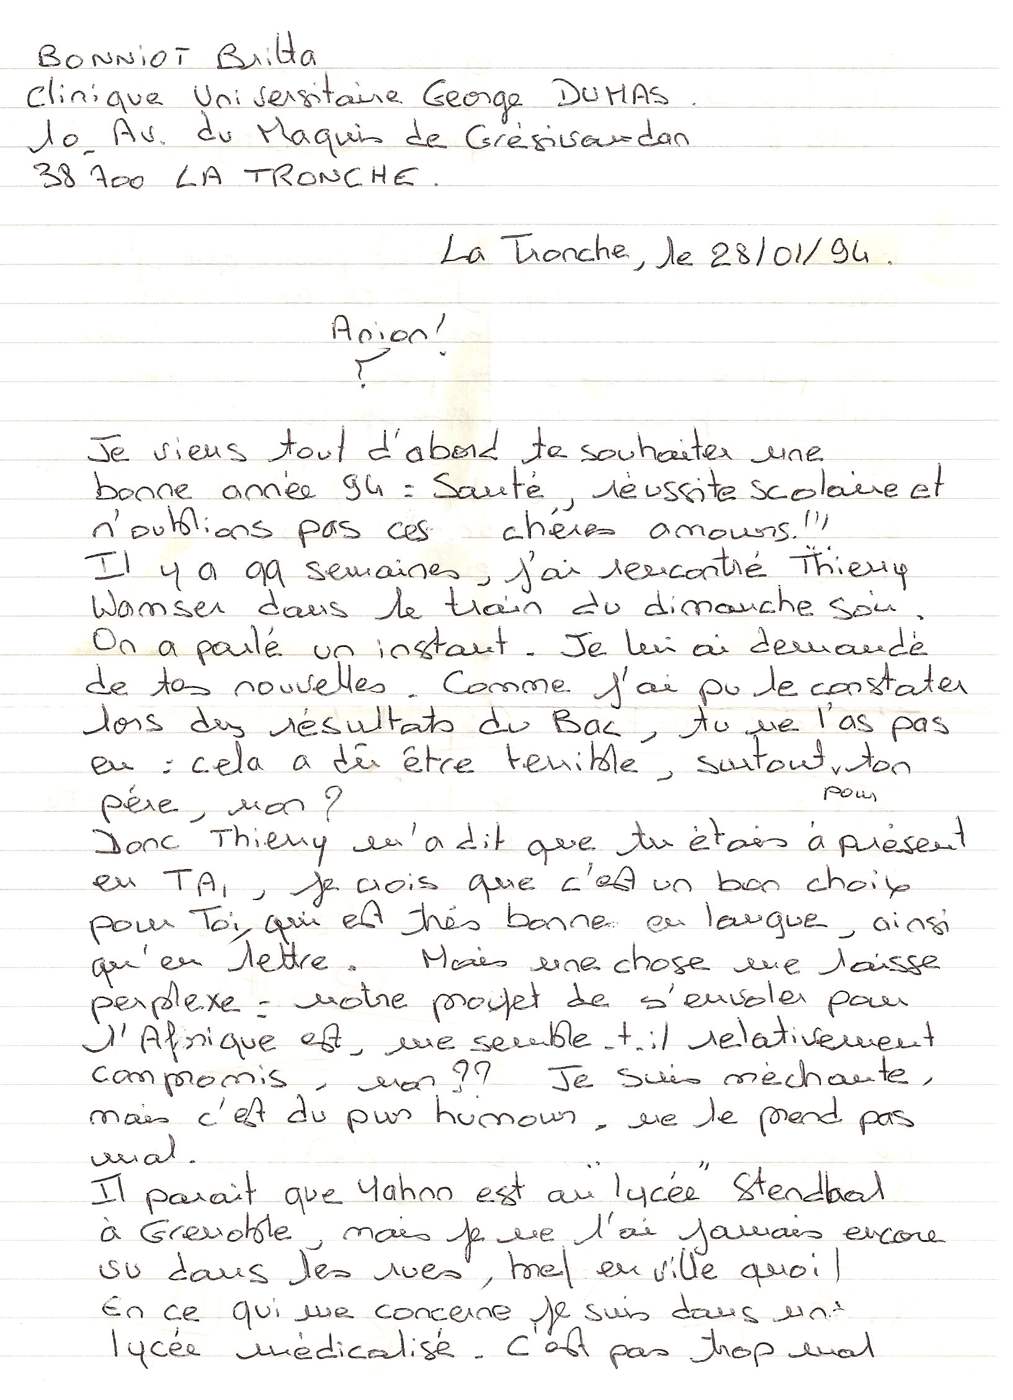 BONNIOT Britta
Clinique Universitaire George DUMAS.
10_ Av. du Maquis de Grésivaudan
38 700 LA TRONCHE.
La Tronche, le 28/01/94.
Anion!
?
Je viens tout d'abord te souhaiter une
bonne année 94 : Santé, réussite scolaire et
n'oublions pas ces chères amours.!!!
Il y a qq semaines, j'ai rencontré Thierry
Wamser dans le train du dimanche soir.
On a parlé un instant. Je lui ai demandé
de tes nouvelles. Comme j'ai pu le constater
lors des résultats du Bac, tu ne l'as pas
eu : cela a dû être terrible, surtout pour ton
père, non ?
Donc Thierry m'a dit que tu étais à présent
en TA1, je crois que c'est un bon choix
pour Toi, qui est très bonne en langue, ainsi
qu'en lettre. Mais une chose me laisse
perplexe : notre projet de s'envoler pour
l'Afrique est, me semble-t-il relativement
compromis, non ?? Je suis méchante,
mais c'est du pur humour, ne le prend pas
mal.
Il parait que Yahnn est au "lycée" Stendhal
à Grenoble, mais je ne l'ai jamais encore
vu dans les rues, bref en ville quoi!
En ce qui me concerne je suis dans un
lycée médicalisé. C'est pas trop mal